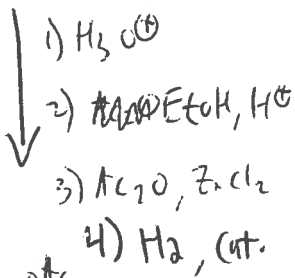 1) H₃O⊕
2) EtOH, H⊕
3) Ac₂O, ZnCl₂
4) H₂, Cat.